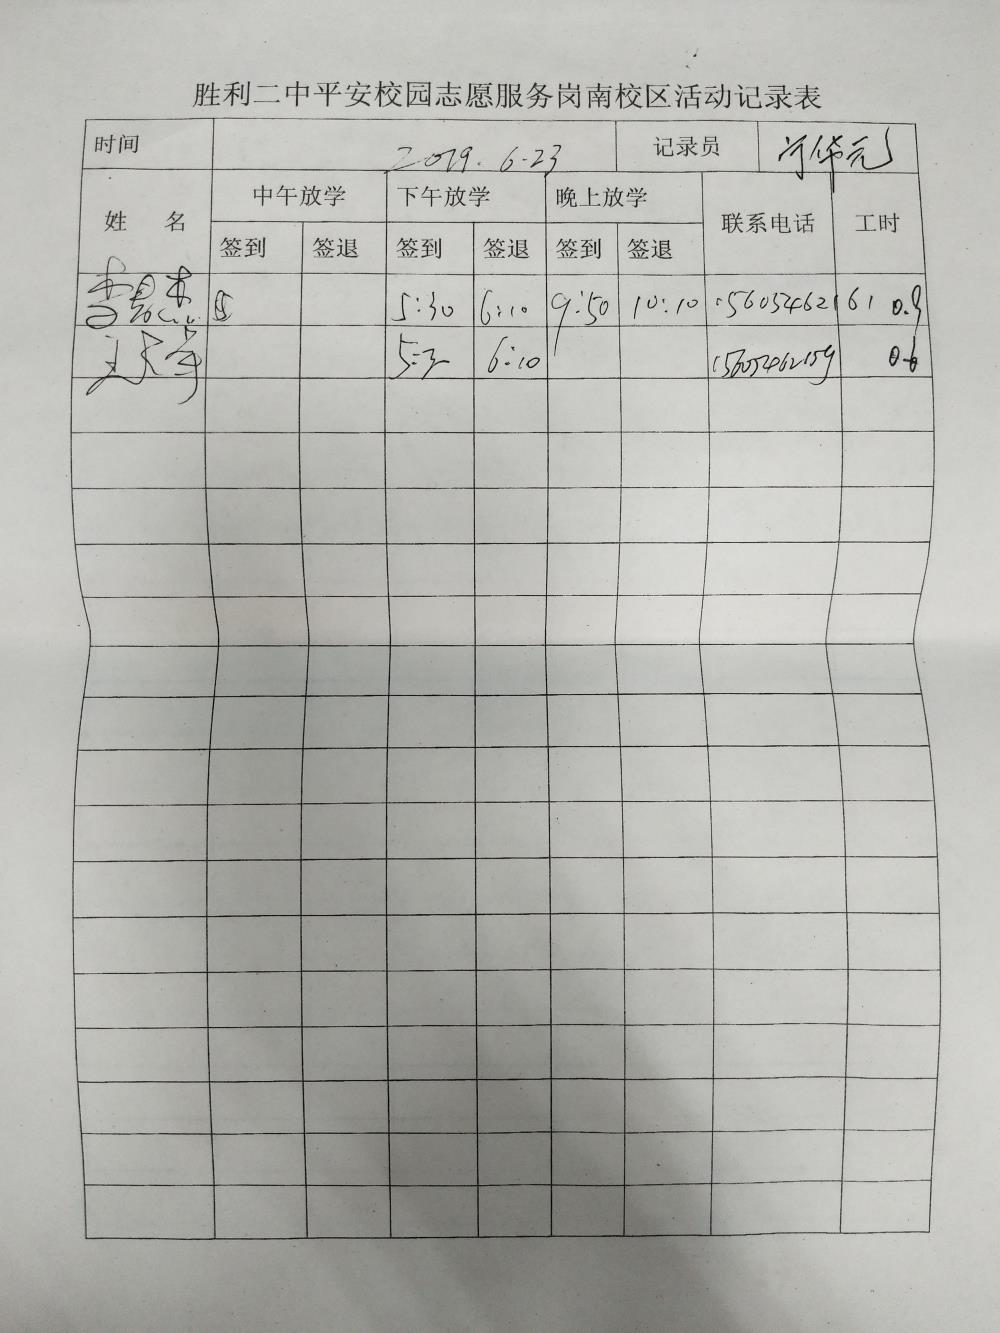 胜利二中平安校园志愿服务岗南校区活动记录表
时间 2019.6.23 记录员
姓 名 中午放学 下午放学 晚上放学 联系电话 工时
签到 签退 签到 签退 签到 签退
5:30 6:10 9:50 10:10 15605462161 0.9
6:10 15605462159 0.6